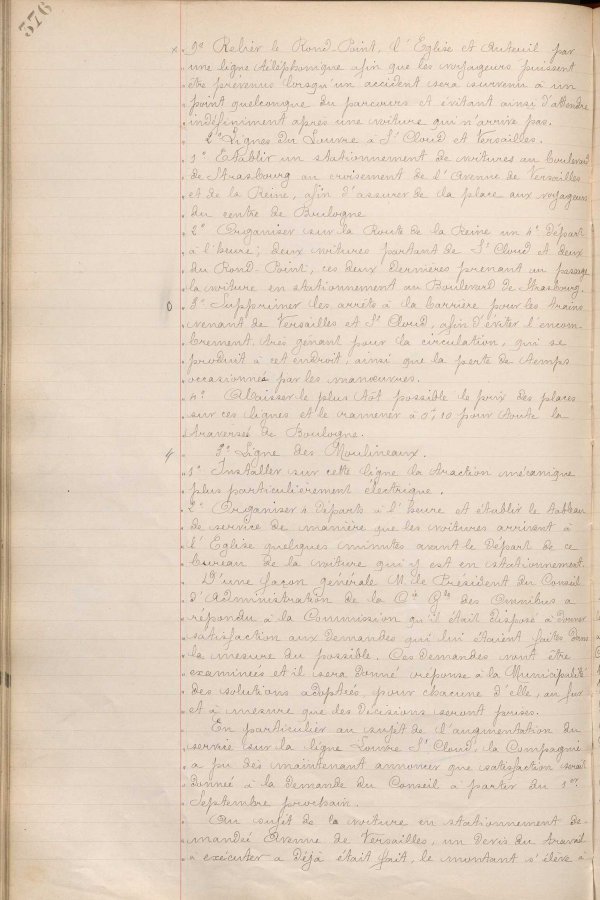 376
x 9° Relier le Rond-Point, l'Eglise et Auteuil par
une ligne téléphonique afin que les voyageurs puissent
être prévenus lorsqu'un accident sera survenu à un
point quelconque du parcours et évitant ainsi d'attendre
indéfiniment après une voiture qui n'arrive pas.
2° Lignes du Louvre à St Cloud et Versailles.
1° Etablir un stationnement de voitures au boulevard
de Strasbourg au croisement de l'Avenue de Versailles
et de la Reine, afin d'assurer de la place aux voyageurs
du centre de Boulogne
2° Organiser sur la Route de la Reine un 4e départ
à l'heure; deux voitures partant de St Cloud et deux
du Rond-Point, ces deux dernières prenant au passage
la voiture en stationnement au Boulevard de Strasbourg.
3° Supprimer les arrêts à la barrière pour les trains
venant de Versailles et St Cloud, afin d'éviter l'encom-
brement, très gênant pour la circulation, qui se
produit à cet endroit, ainsi que la perte de temps
occasionnée par les manœuvres.
4° Abaisser le plus tôt possible le prix des places
sur ces lignes et le ramener à 0f,10 pour toute la
traversée de Boulogne.
3° Ligne des Moulineaux.
1° Installer sur cette ligne la traction mécanique
plus particulièrement électrique.
2° Organiser 4 départs à l'heure et établir le tableau
de service de manière que les voitures arrivent à
l'Eglise quelques minutes avant le départ de ce
bureau de la voiture qui y est en stationnement.
D'une façon générale M. le Président du Conseil
d'Administration de la Cie Gle des Omnibus a
répondu à la Commission qu'il était disposé à donner
satisfaction aux demandes qui lui étaient faites dans
la mesure du possible. Ces demandes vont être
examinées et il sera donné réponse à la Municipalité
des solutions adoptées, pour chacune d'elle, au fur
et à mesure que des décisions seront prises.
En particulier au sujet de l'augmentation du
service sur la ligne Louvre St Cloud, la Compagnie
a pu dès maintenant annoncer que satisfaction serait
donnée à la demande du Conseil à partir du 1er
Septembre prochain.
Au sujet de la voiture en stationnement de-
mandée Avenue de Versailles, un devis du travail
à exécuter a déjà était fait, le montant s'élève à